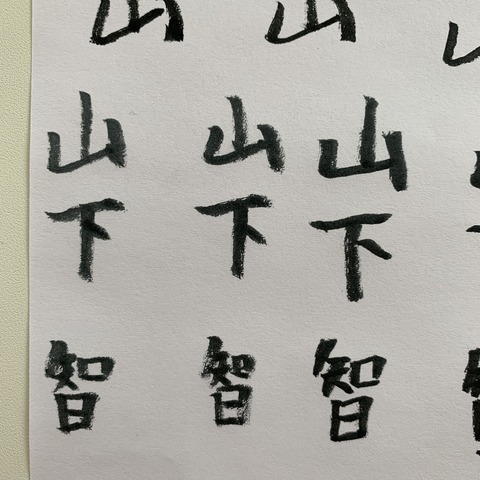 山 山
山下智
山下智
山下智